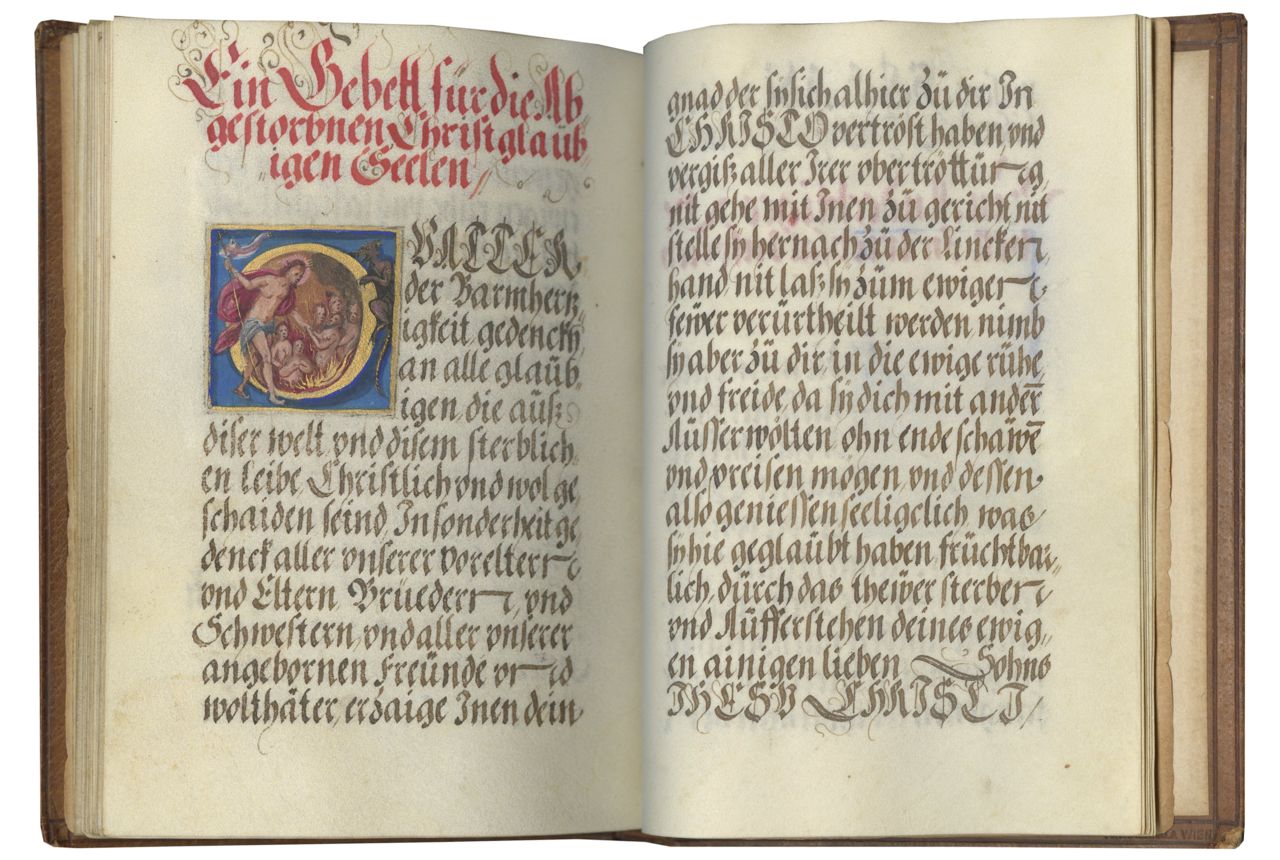 Ein Gebett für die Ab
gestorbnen Christglaüb,
igen Seelen
O VATTER
der Barmhertz
igkeit gedenckh
an alle glaüb,
igen die aüß
diser welt vnd disem sterblich,
en leibe Christlich vnd wol ge,
schaiden seind, Insonderheit ge,
denck aller vnserer Voreltern
vnd Eltern, Brüedern, vnd
Schwestern, vnd aller vnserer
angebornen Freünde vnd
wolthäter, erzaige Inen dein
gnad der sÿ sich alhier zü dir In
CHRISTO vertröst haben, vnd
vergiß aller Irer vbertrottüng
nit gehe mit Inen zü gericht nit
stelle sÿ hernach zü der Lincken
hand nit laß sÿ züm ewigen
fewer verürtheilt werden nimb
sÿ aber zü dir in die ewige rühe,
vnd freide, da sÿ dich mit anderñ
Aüsserwölten ohn ende schawẽ
vnd preisen mögen, vnd dessen
also geniessen seeligelich, was
sÿ hie geglaübt haben, früchtbar,
lich, dürch das thewer sterben
vnd Aüfferstehen deines ewig,
en ainigen lieben Sohns
IHESV CHRISTI,
WIEN